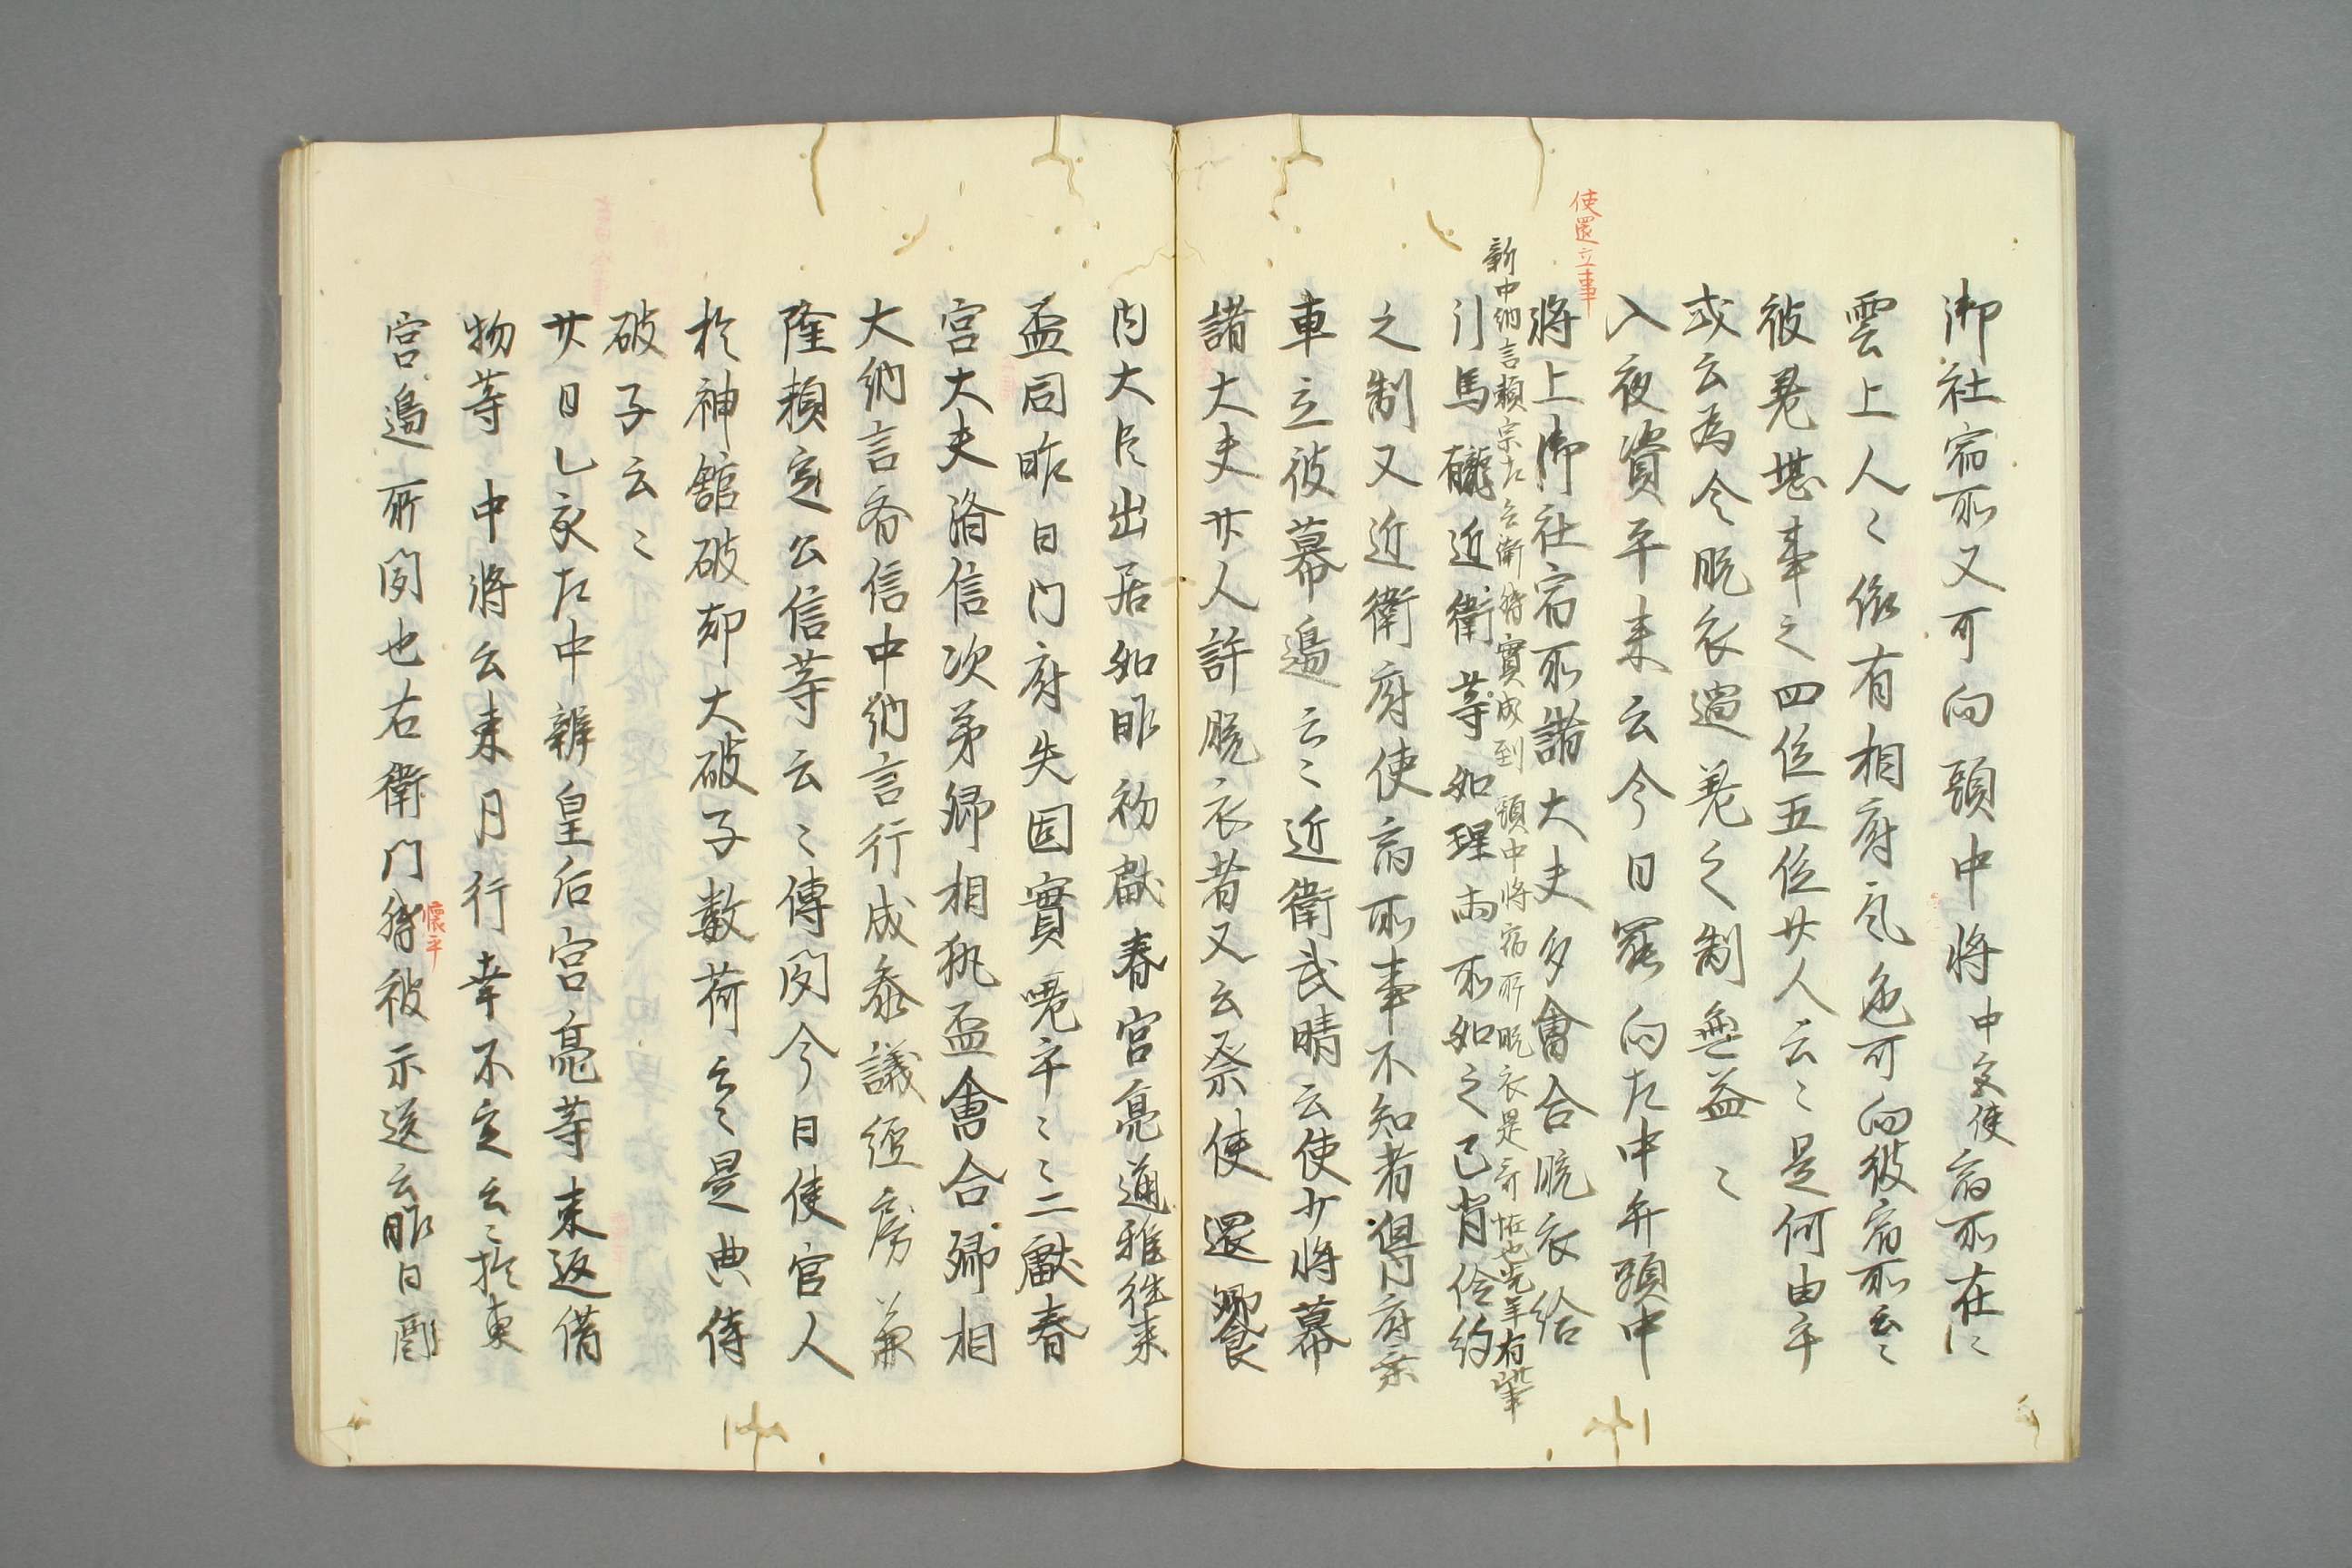 御社宿所又可向頭中将中宮使宿所在々
雲上人々依有相府氣色可向彼宿所云々
彼是堪事之四位五位廿人云々是何由乎
或云為令脱衣過差之制無益々
入夜資平来云今日罷向左中弁頭中
使還立事
将上御社宿所諸大夫多會合脱衣給
新中納言頼宗左兵衛督實成到頭中将宿所脱衣是奇恠也先年有此事
引馬龓近衛等如理両所如之已背倹約
之制又近衛府使宿所事不知者但内府乗
車立彼幕邊云々近衛武晴云使少将幕
諸大夫廿人許脱衣者又云祭使還饗
内大臣出居如昨初獻春宮亮道雅徃来
盃同昨日内府失固實嘲弄々々二獻春
宮大夫濟信次第卿相執盃會合卿相
大納言斉信中納言行成参議經房兼
隆頼定公信等云々傳聞今日使官人
於神舘破却大破子數荷云々是典侍
破子云々
廿日乙亥左中辨皇后宮亮等来返借
物等中将云来月行幸不定云々於東
宮邊所聞也右衛門督被示送云昨日
懐平